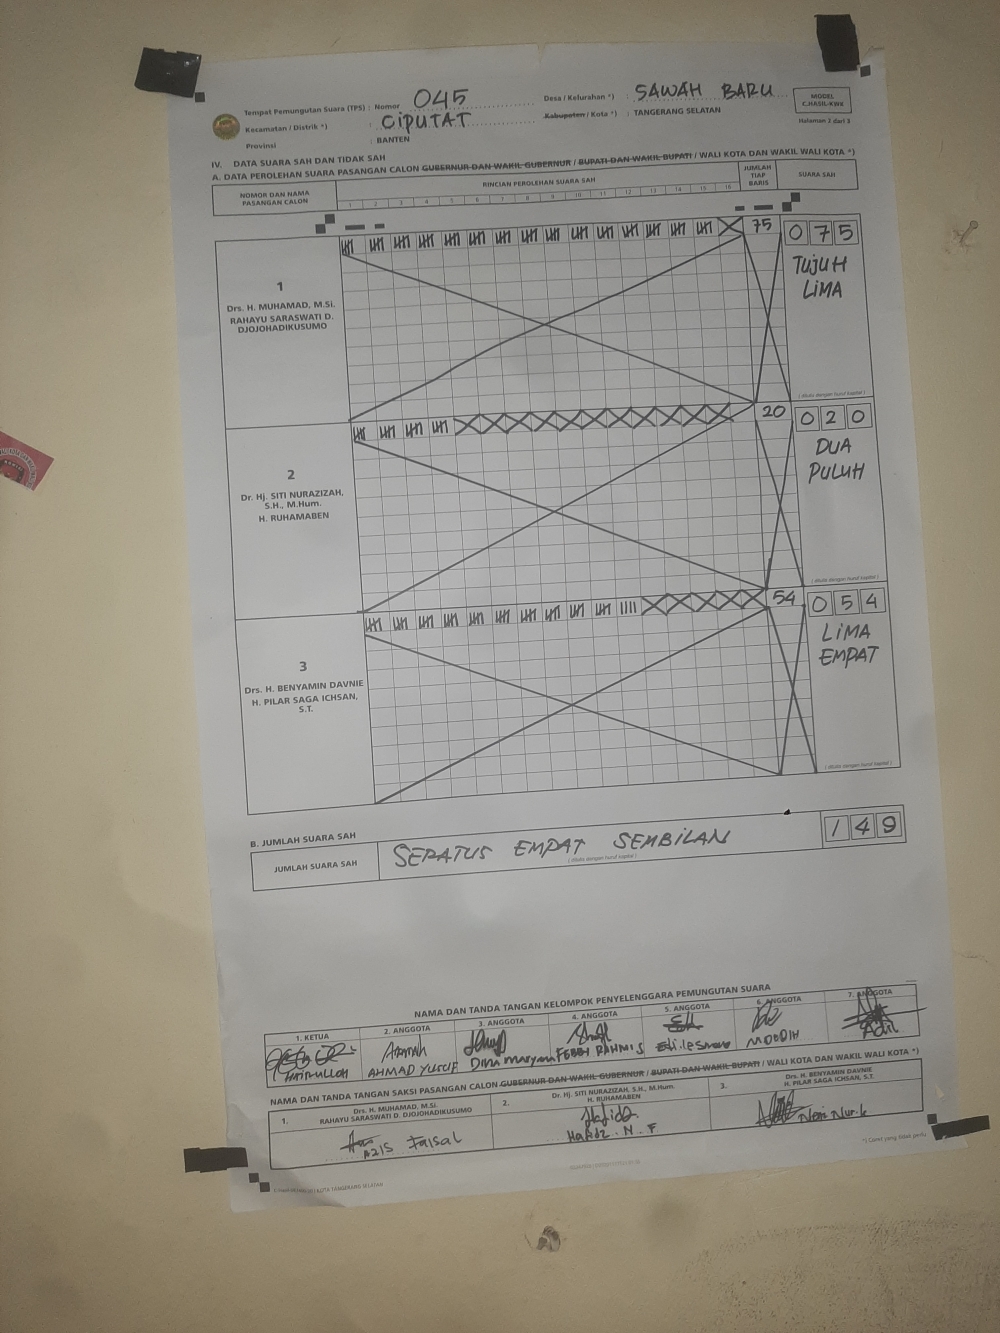 Tempat Pemungutan Suara (TPS) : Nomor 045
Desa / Kelurahan *) : SAWAH BARU
Kecamatan / Distrik *) : CIPUTAT
Kabupaten / Kota *) : TANGERANG SELATAN
Provinsi : BANTEN
MODEL
C.HASIL-KWK
Halaman 2 dari 3
IV. DATA SUARA SAH DAN TIDAK SAH
A. DATA PEROLEHAN SUARA PASANGAN CALON GUBERNUR DAN WAKIL GUBERNUR / BUPATI DAN WAKIL BUPATI / WALI KOTA DAN WAKIL WALI KOTA *)
NOMOR DAN NAMA
PASANGAN CALON
RINCIAN PEROLEHAN SUARA SAH
1 2 3 4 5 6 7 8 9 10 11 12 13 14 15 16
JUMLAH
TIAP
BARIS
SUARA SAH
1
Drs. H. MUHAMAD, M.Si.
RAHAYU SARASWATI D.
DJOJOHADIKUSUMO
75
075
TUJUH
LIMA
(ditulis dengan huruf kapital)
2
Dr. Hj. SITI NURAZIZAH,
S.H., M.Hum.
H. RUHAMABEN
20
020
DUA
PULUH
(ditulis dengan huruf kapital)
3
Drs. H. BENYAMIN DAVNIE
H. PILAR SAGA ICHSAN,
S.T.
54
054
LIMA
EMPAT
(ditulis dengan huruf kapital)
B. JUMLAH SUARA SAH
JUMLAH SUARA SAH
SERATUS EMPAT SEMBILAN
(ditulis dengan huruf kapital)
149
NAMA DAN TANDA TANGAN KELOMPOK PENYELENGGARA PEMUNGUTAN SUARA
1. KETUA
2. ANGGOTA
3. ANGGOTA
4. ANGGOTA
5. ANGGOTA
6. ANGGOTA
7. ANGGOTA
AHMAD YUSUF
MOODIH
Adil
NAMA DAN TANDA TANGAN SAKSI PASANGAN CALON GUBERNUR DAN WAKIL GUBERNUR / BUPATI DAN WAKIL BUPATI / WALI KOTA DAN WAKIL WALI KOTA *)
1.
Drs. H. MUHAMAD, M.Si.
RAHAYU SARASWATI D. DJOJOHADIKUSUMO
AZIS Faisal
2.
Dr. Hj. SITI NURAZIZAH, S.H., M.Hum.
H. RUHAMABEN
Hafidz . N . F
3.
Drs. H. BENYAMIN DAVNIE
H. PILAR SAGA ICHSAN, S.T.
*) Coret yang tidak perlu